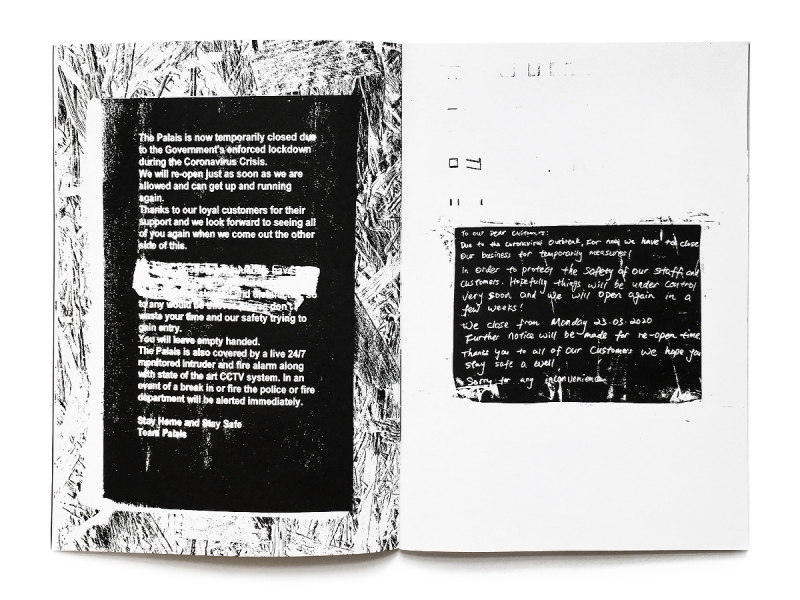 The Palais is now temporarily closed due
to the Government's enforced lockdown
during the Coronavirus Crisis.
We will re-open just as soon as we are
allowed and can get up and running
again.
Thanks to our loyal customers for their
support and we look forward to seeing all
of you again when we come out the other
side of this.
have
to any would be don't
waste your time and our safety trying to
gain entry.
You will leave empty handed.
The Palais is also covered by a live 24/7
monitored intruder and fire alarm along
with state of the art CCTV system. In an
event of a break in or fire the police or fire
department will be alerted immediately.
Stay Home and Stay Safe
Team Palais
To our Dear Customers:
Due to the coronavirus outbreak, For now we have to close
Our business for temporarily measures!
In order to protect the safety of our staff and
Customers. Hopefully things will be under control
very soon and we will open again in a
few weeks!
We close from Monday 23.03.2020
Further notice will be made for re-open time
Thanks you to all of Our Customers we hope you
stay safe & well
Sorry for any inconvenience